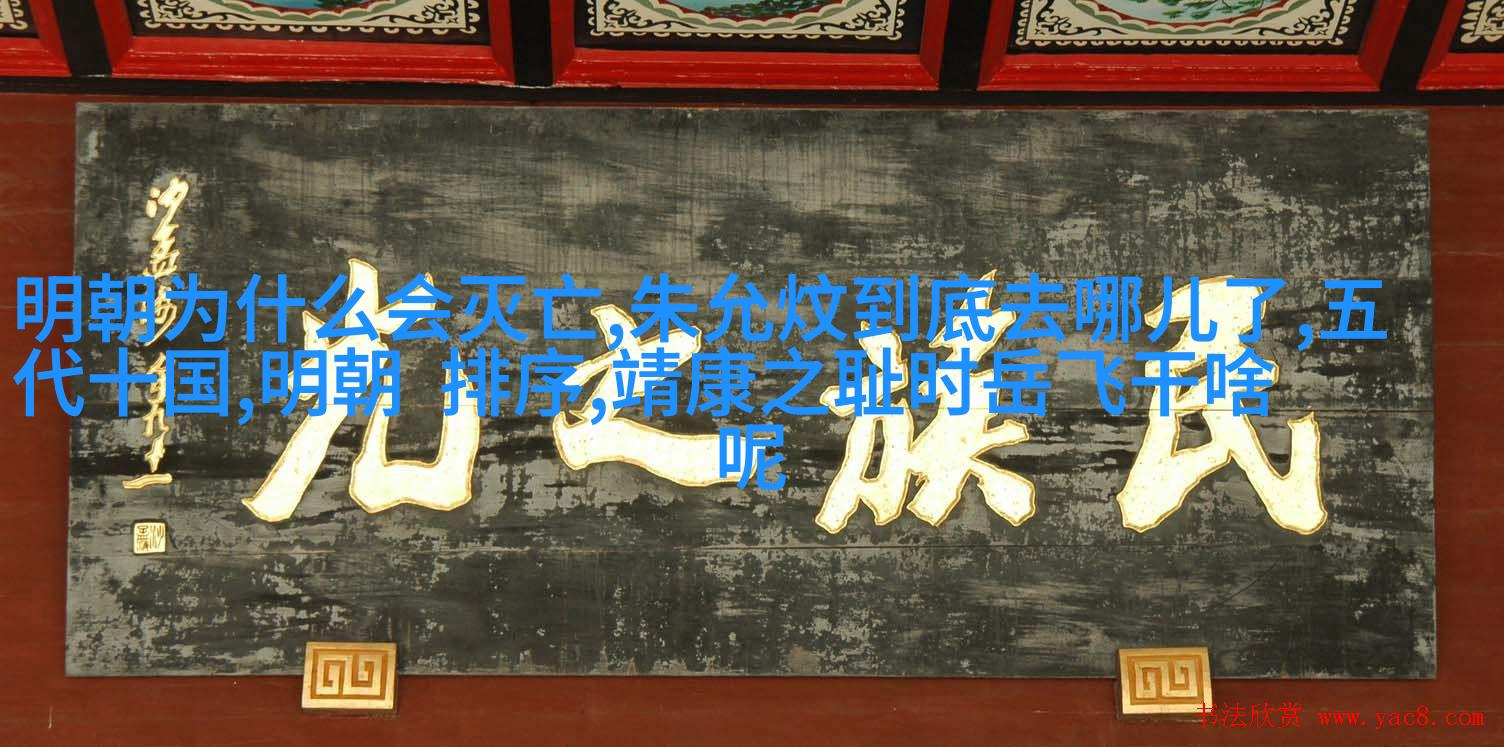 明朝为什么会灭亡,朱允炆到底去哪儿了,五
代十国,明朝 排序,靖康之耻时岳飞干啥
呢
民族之光
沙孟海 年九十一
书法欣赏 www.yac8.com